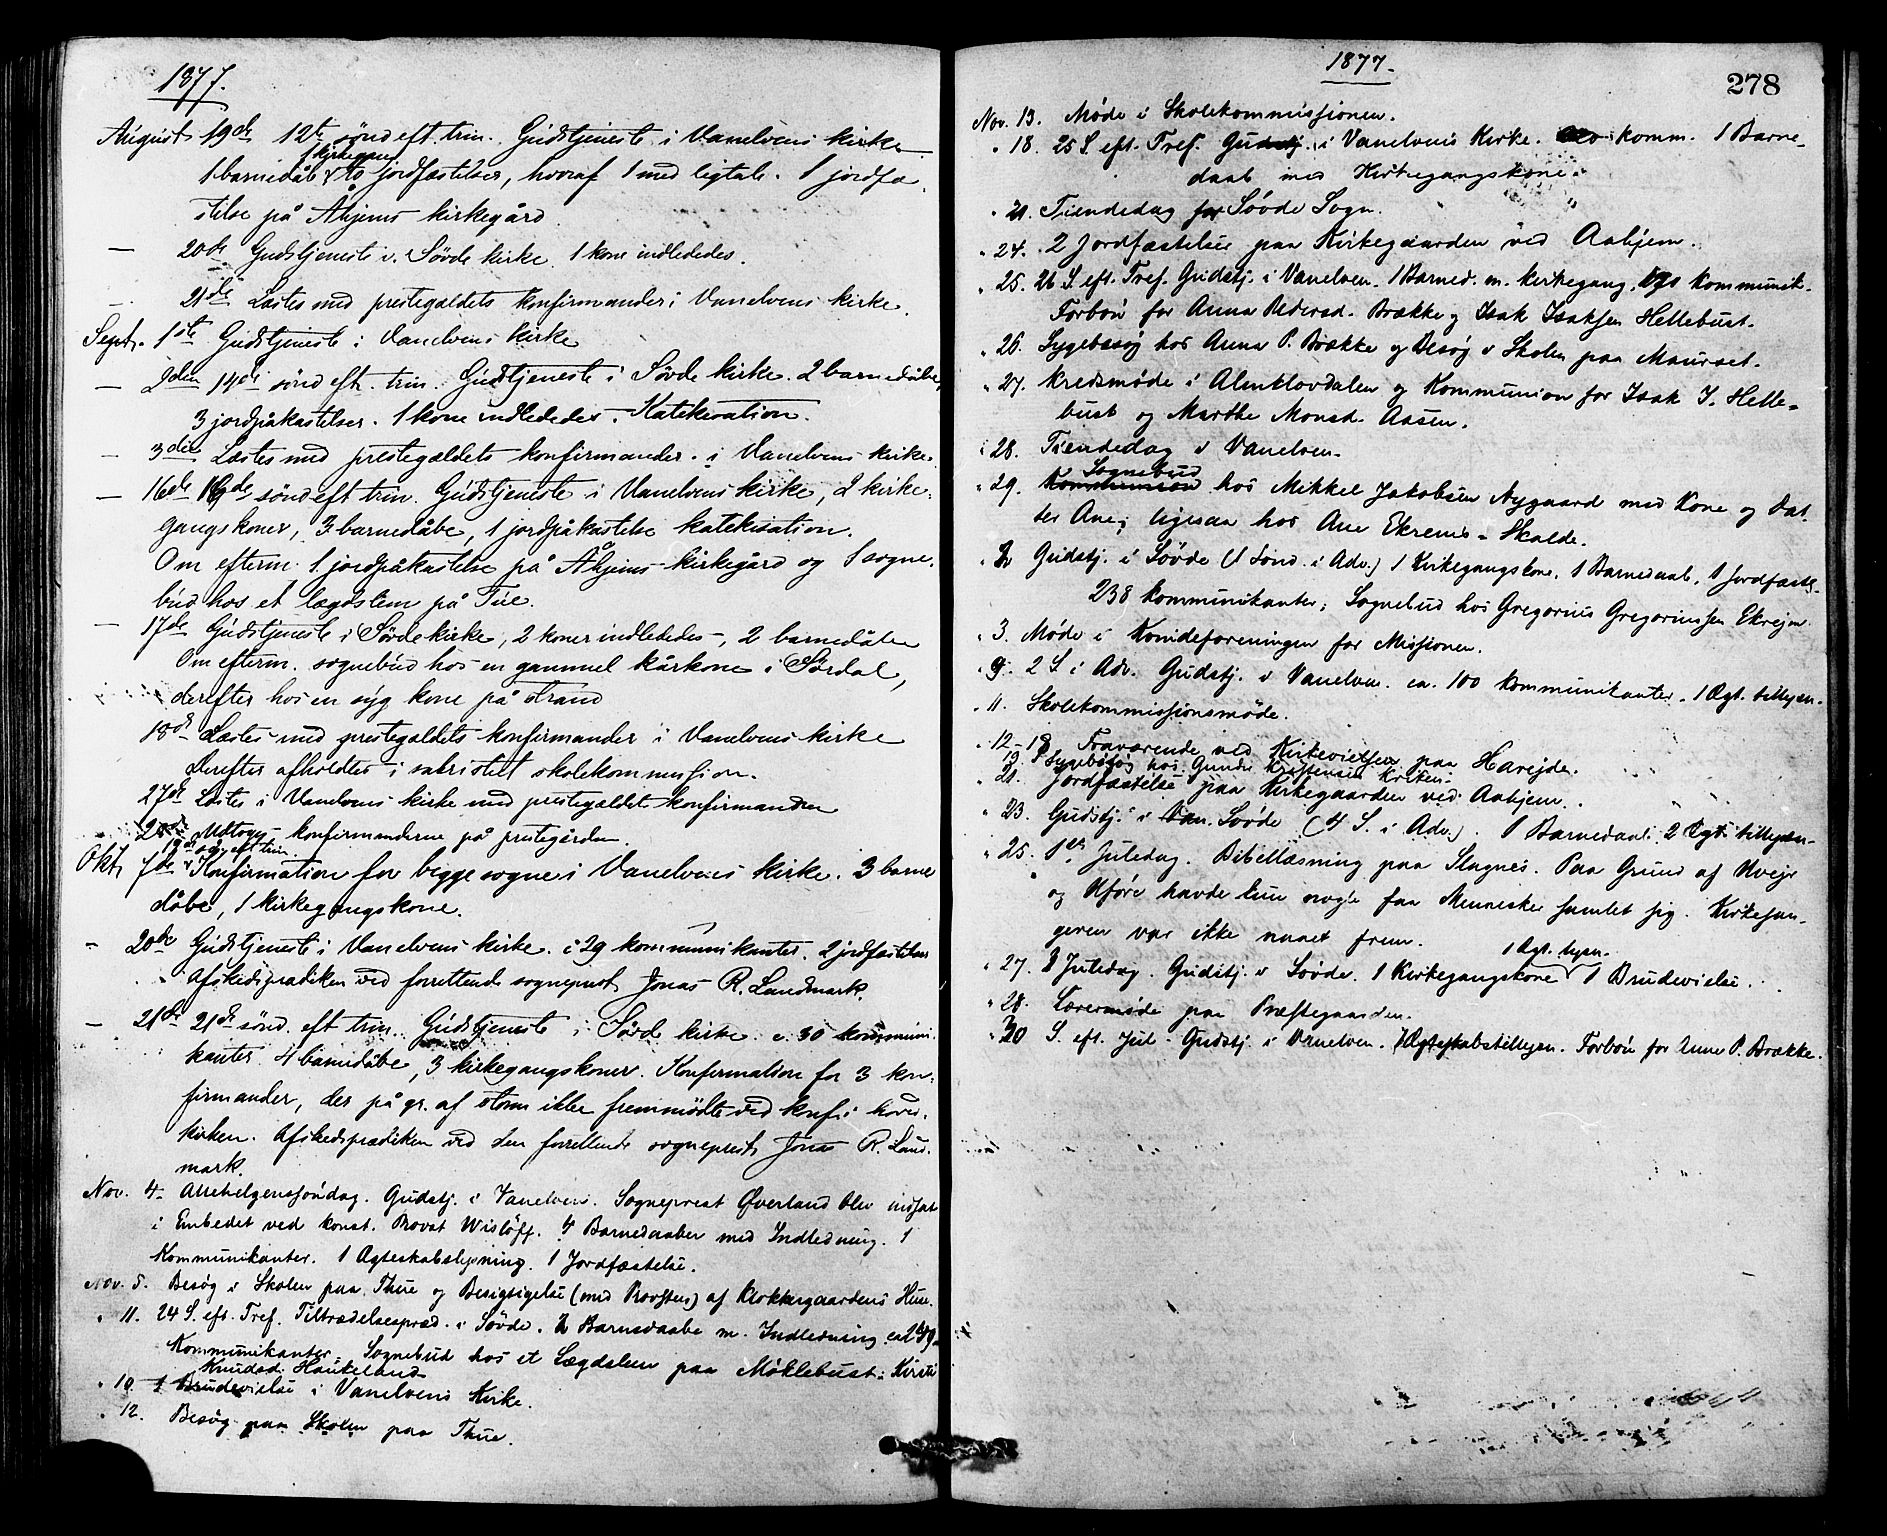 1877.
August 19de 12te sönd eft. trin. Gudstjeneste i Vanelvens kirke
1 kirkegang
1 barnedåb & to jordfæstelser, hvoraf 1 med ligtale. 1 jordfæ-
stelse på Åhjems kirkegård.
— 20de Gudstjeneste i Sövde kirke. 1 kone indlededes.
— 21de Læstes med prestegældets konfirmander i Vanelvens kirke.
Sept. 1ste Gudstjeneste i Vanelvens kirke
— 2den 14de sönd eft. trin. Gudstjeneste i Sövde kirke. 2 barnedåbe,
3 jordpåkastelser. 1 kone indlededes. Katekisation.
— 3die Læstes med prestegældets konfirmander i Vanelvens kirke.
— 16de 16de sönd eft trin. Gudstjeneste i Vanelvens kirke, 2 kirke-
gangskoner, 3 barnedåbe, 1 jordpåkastelse katekisation.
Om efterm. 1 jordpåkastelse på Åhjems kirkegård og 1 sogne-
bud hos et lægdslem på Tue.
— 17de Gudstjeneste i Sövde kirke, 2 koner indlededes, 2 barnedåbe
Om efterm. sognebud hos en gammel kårkone i Sördal,
derefter hos en syg kone på Strand
18de Læstes med prestegældets konfirmander i Vanelvens kirke
derefter afholdtes i sakristiet skolekommission.
27de Læstes i Vanelvens kirke med prestegældets konfirmander
28de Udtoges konfirmanderne på prestegården.
19de sönd eft trin.
Okt. 7de Konfirmation for begge sogne i Vanelvens kirke. 3 barne
dåbe, 1 kirkegangskone.
— 20de Gudstjeneste i Vanelvens kirke. 29 kommunikanter. 2 jordfæstelser
Afskedsprædiken ved forrettende sogneprest Jonas R. Landmark.
— 21de 21de sönd. eft trin. Gudstjeneste i Sövde kirke c. 30 kommuni
kanter. 4 barnedåbe, 3 kirkegangskoner. Konfirmation for 3 kon-
firmander, der på gr. af storm ikke fremmödte ved konf. i hoved-
kirken. Afskedsprædiken ved den forrettende sogneprest Jonas R. Land-
mark.
Nov. 4. Allehelgenssöndag. Gudstj. i Vanelven. Sogneprest Øverland blev indsat
i Embedet ved konst. Provst Wislöff. 4 Barnedaaber med Indledning. 1
Kommunikanter. 1 Ægteskabslysning. 1 Jordfæstelse.
Nov. 5. Besøg i Skolen paa Thue og Besigtigelse (med Provsten) af Klokkergaardens Huse.
" 11. 24 S. eft. Tref. Tiltrædelsespræd. i Søvde. 2 Barnedaabe m. Indledning ca
Kommunikanter. Sognebud hos et Lægdslem paa Möklebust: Kirsti
Knudsd. Haukeland
" 10. 1 Brudevielse i Vanelvens Kirke.
" 12. Besøg paa Skolen paa Thue.
1877.
278
Nov. 13. Møde i Skolekommissionen.
" 18. 25 S. eft. Tref. Gudstj. i Vanelvens Kirke. komm. 1 Barne-
daab med Kirkegangskone.
" 21. Tiendedag for Søvde Sogn.
" 24. 2 Jordfæstelser paa Kirkegaarden ved Aahjem.
" 25. 26 S. eft. Tref. Gudstj. i Vanelven. 1 Barned. m. kirkegang. kommunik.
Forbøn for Anna Pedersd. Brække og Isak Isaksen Hellebust.
" 26. Sygebesøg hos Anna P. Brække og Besøg i Skolen paa Maurset.
" 27. Kredsmøde i Almklovdalen og Kommunion for Isak I. Helle-
bust og Marthe Monsd. Aasen.
" 28. Tiendedag i Vanelven.
Sognebud
" 29. Kommunion hos Mikkel Jakobsen Nygaard med Kone og Dat-
ter Ane; ligesaa hos Ane Ekrems - Skalde.
" 2 Gudstj. i Søvde (1 Sönd. i Adv.) 1 Kirkegangskone. 1 Barnedaab. 1 Jordfæstel-
238 Kommunikanter; Sognebud hos Gregorius Gregoriussen Ekrejm.
" 3. Møde i Kvindeforeningen for Missionen.
" 9. 2 S. i Adv. Gudstj. i Vanelven. ca. 100 Kommunikanter. 1 Ægt. tillysn.
" 11. Skolekommissionsmøde.
" 12-18 Fraværende ved Kirkevielsen paa Harejde.
19 Sygebesøg hos
" 21. Jordfæstelse paa Kirkegaarden ved Aahjem.
" 23. Gudstj. i Van. Søvde (4 S. i Adv.). 1 Barnedaab. 2 Ægt. tillysn-
" 25. 1ste Juledag. Bibellæsning paa Slagnes. Paa Grund af Uvejr
og Uføre havde kun nogle faa Mennesker samlet sig. Kirkesan-
geren var ikke naaet frem.
1 Ægt. lysn.
" 27. 3 Juledag. Gudstj. i Søvde. 1 Kirkegangskone 1 Brudevielse.
" 28. Lærermøde paa Præstegaarden.
" 30 S. eft. Jul. Gudstj. i Vanelven. 1 Ægteskabstillysn. Forbøn for Anne P. Brække.